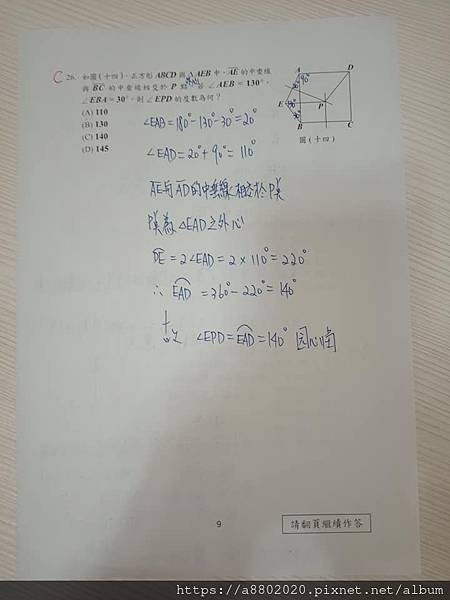 C 26. 如圖(十四),正方形ABCD與△AEB中,AE的中垂線
與BC的中垂線相交於P點。若∠AEB=130°,
∠EBA=30°,則∠EPD的度數為何?
(A) 110
(B) 130
(C) 140
(D) 145
A D
90°
E P
B C
圖(十四)
∠EAB=180°-130°-30°=20°
∠EAD=20°+90°=110°
AE與AD的中垂線相交於P點
P點為△EAD之外心
DE=2∠EAD=2×110°=220°
∴ EAD=360°-220°=140°
故 ∠EPD=EAD=140° 圆心角
9
請翻頁繼續作答
https://a8802020.pixnet.net/album